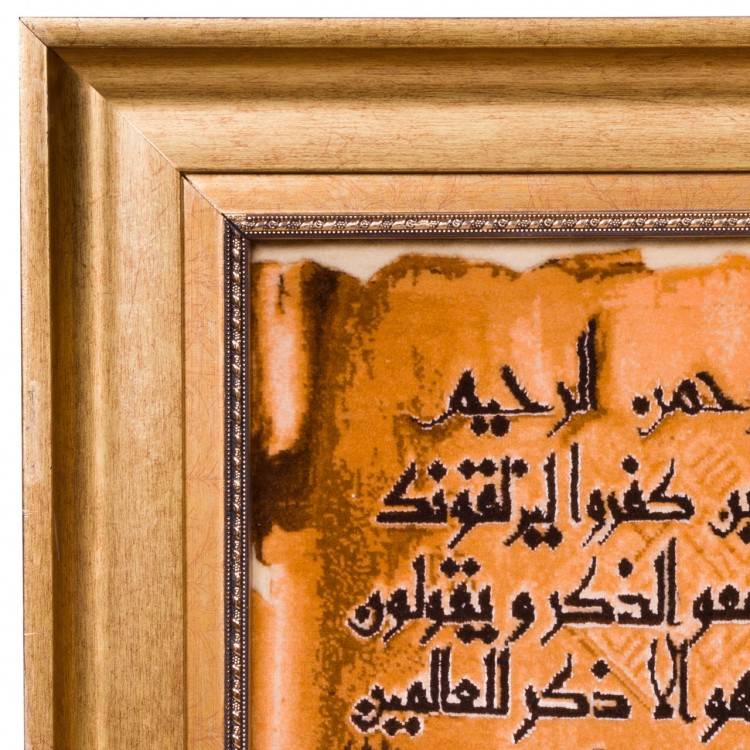 حمن الرحيم
ين كفروا ليزلقونك
معو الذكر و يقولون
هو الا ذكر للعالمين